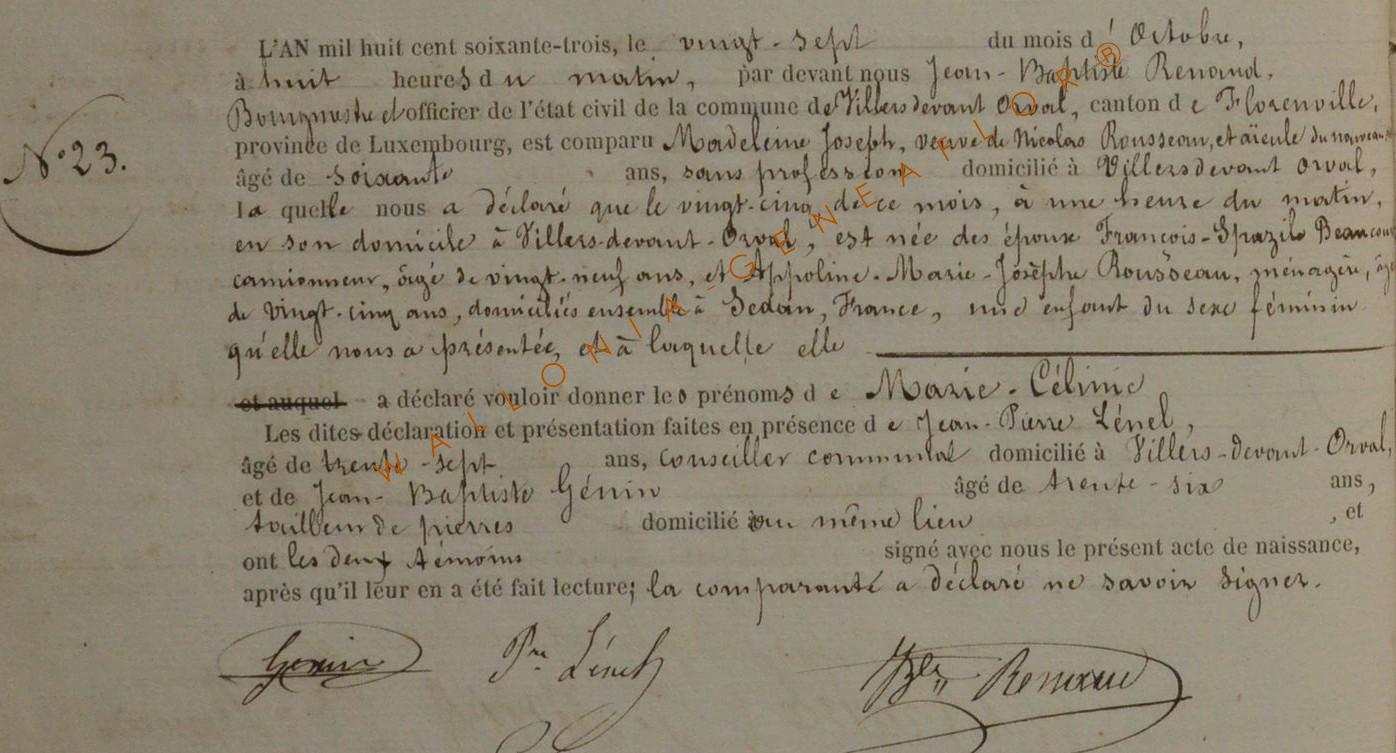 L'AN mil huit cent soixante-trois, le vingt-sept du mois d' Octobre,
à huit heures du matin, par devant nous Jean-Baptiste Renaud,
Bourgmestre et officier de l'état civil de la commune de Villers devant Orval, canton de Florenville,
province de Luxembourg, est comparu Madeleine Joseph, veuve de Nicolas Rousseau, et aïeule du nouveau
N° 23.
âgé de soixante ans, sans profession domicilié à Villers devant Orval,
la quelle nous a déclaré que le vingt-cinq de ce mois, à une heure du matin,
en son domicile à Villers-devant-Orval, est née des époux François-Spazile
camionneur, âgé de vingt-neuf ans, et Appoline-Marie-Josèphe Rousseau, ménagère,
de vingt-cinq ans, domiciliés ensemble à Sedan, France, une enfant du sexe féminin
qu'elle nous a présentée, et à laquelle elle
et auquel a déclaré vouloir donner les prénoms de Marie-Célinie
Les dites déclaration et présentation faites en présence de Jean-Pierre Lénel,
âgé de trente-sept ans, conseiller communal domicilié à Villers-devant-Orval,
et de Jean-Baptiste Génin âgé de trente-six ans,
tailleur de pierres domicilié au même lieu , et
ont les deux témoins signé avec nous le présent acte de naissance,
après qu'il leur en a été fait lecture; la comparante a déclaré ne savoir signer.
Genin Pre Lénel Bte Renaud
WALLONIA-GENEAFLOR®